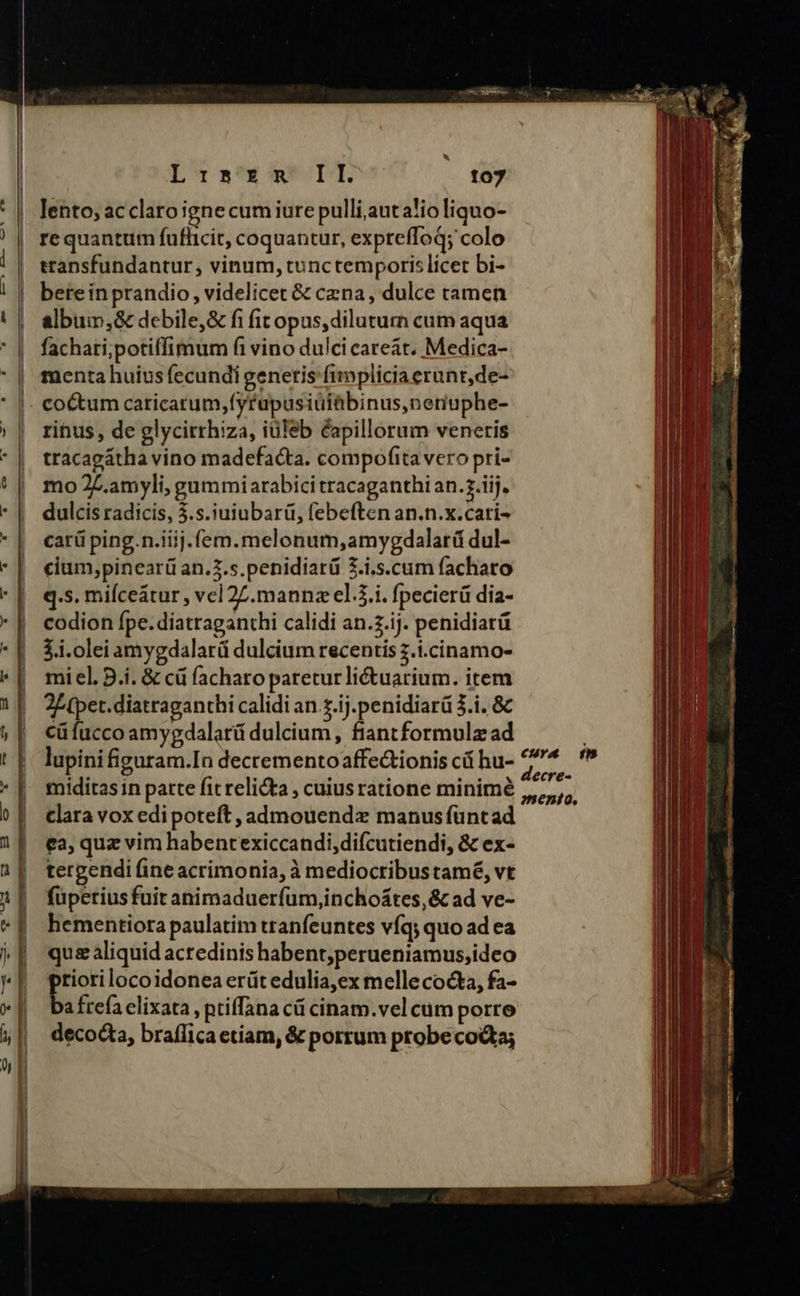 LIBER II. 107
lento, ac claro igne cum iure pulli, aut alio liquo-
re quantum sufficit, coquantur, expressoq́; colo
transfundantur, vinum, tunc temporis licet bi-
bere in prandio, videlicet & cæna, dulce tamen
album, & debile, & si sit opus, dilutum cum aqua
sachari; potissimum si vino dulci careāt. Medica-
menta huius secundi generis simplicia erunt, de-
coctum caricarum, syrupus iuiubinus, nenuphe-
rinus, de glycirrhiza, iūleb capillorum veneris
tracagātha vino madefacta. composita vero pri-
mo ℞. amyli, gummi arabici tracaganthi an. ʒ.iij.
dulcis radicis, ℥.s. iuiubarū, sebesten an. n. x. cari-
carū ping. n. iiij. sem. melonum, amygdalarū dul-
cium, pinearū an. ℥.s. penidiarū ℥.i.s. cum sacharo
q.s. misceātur, vel ℞. mannæ el. ℥.i. specierū dia-
codion spe. diatraganthi calidi an. ʒ.ij. penidiarū
℥.i. olei amygdalarū dulcium recentis ʒ.i. cinamo-
mi el. ℈.i. & cū sacharo paretur lictuarium. item
℞ spet. diatraganthi calidi an ʒ.ij. penidiarū ℥.i. &
cū succo amygdalarū dulcium, fiant formulæ ad
lupini figuram. In decremento affectionis cū hu-
miditas in parte sit relicta, cuius ratione minimè
clara vox edi potest, admouendæ manus sunt ad
ea, quæ vim habent exiccandi, discutiendi, & ex-
tergendi sine acrimonia, à mediocribus tamē, vt
superius fuit animaduersum, inchoātes, & ad ve-
hementiora paulatim transeuntes vsq; quo ad ea
quæ aliquid acredinis habent, perueniamus, ideo
priori loco idonea erūt edulia, ex melle cocta, fa-
ba fresa elixata, ptissana cū cinam. vel cum porro
decocta, brassica etiam, & porrum probe cocta;
cura in
decre-
mento.